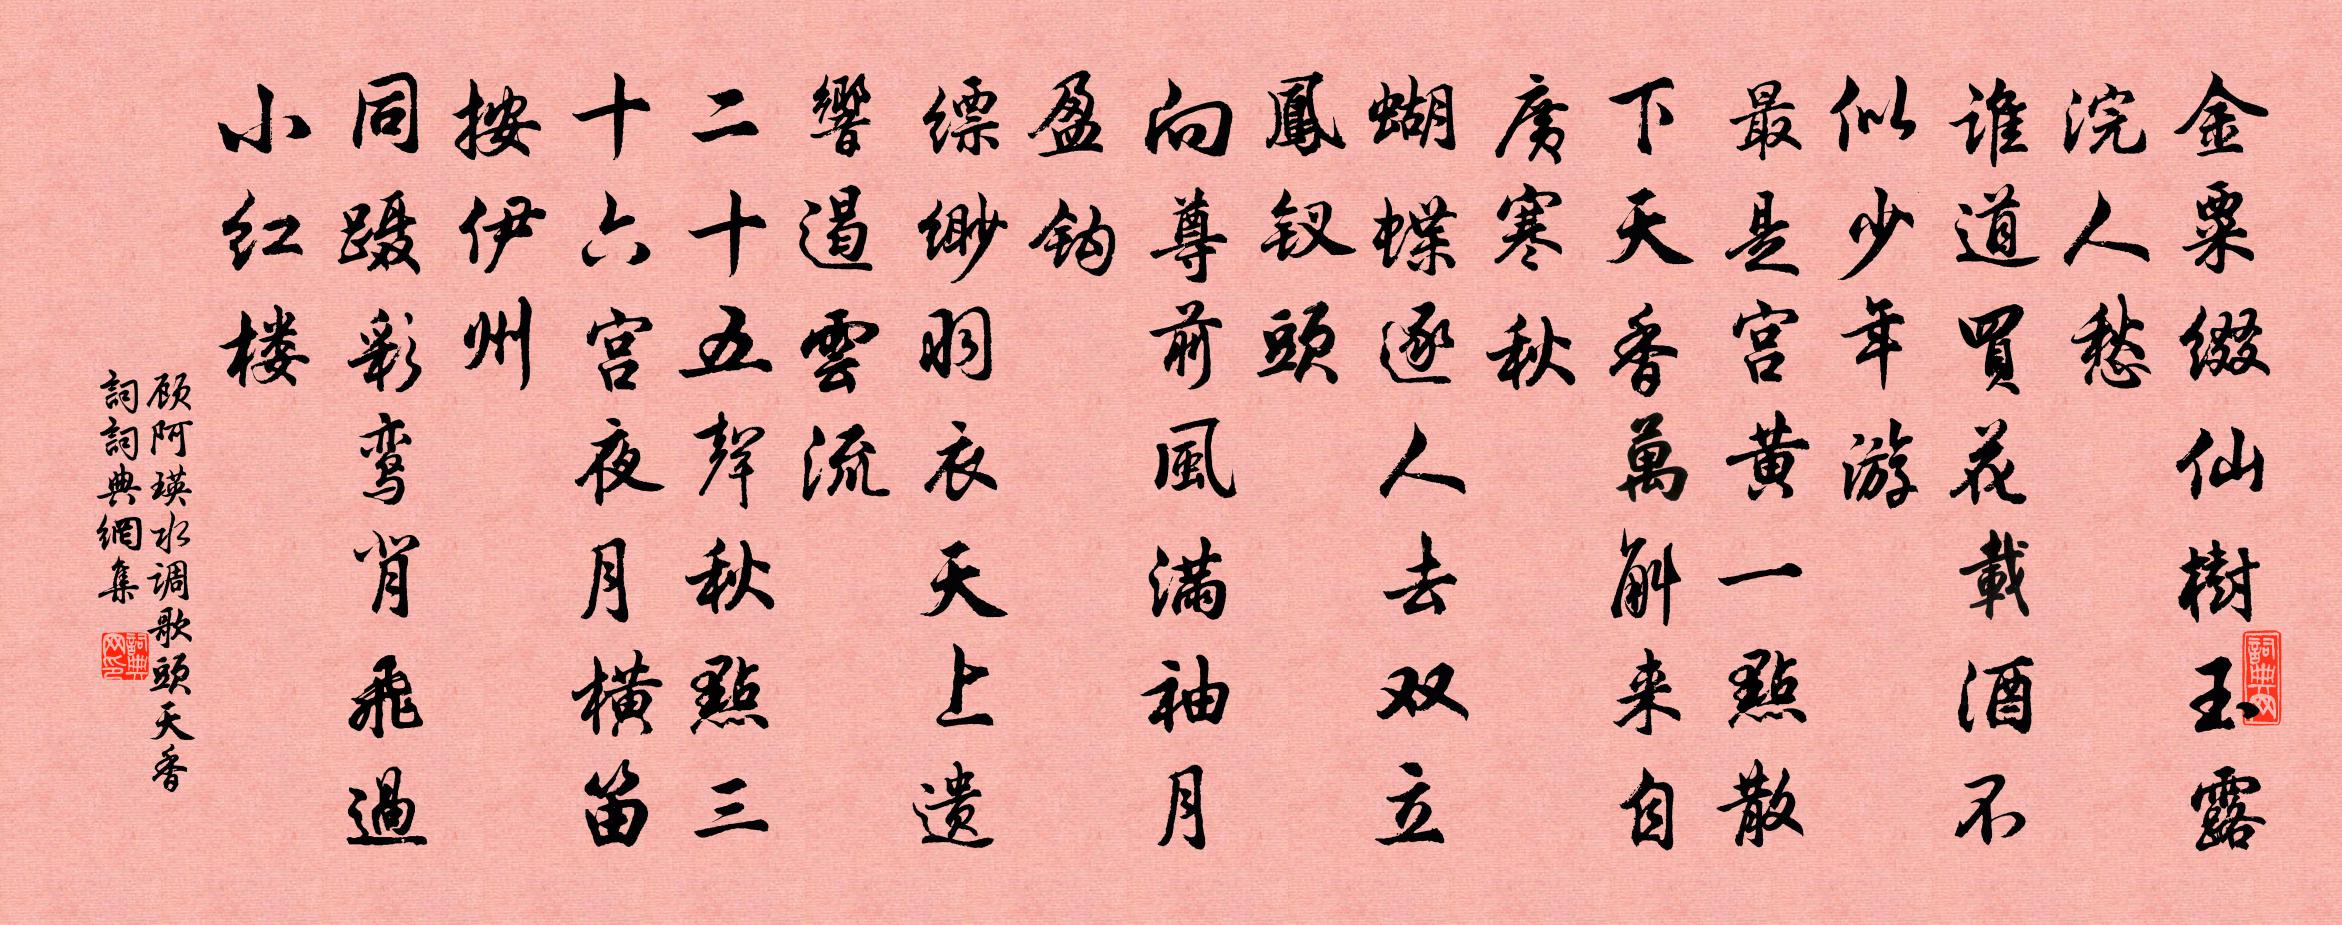 金粟缀仙樹玉露
浣人愁
谁道買花載酒不
似少年游
最是宫黄一點散
下天香萬斛来自
廣寒秋
蝴蝶逐人去双立
鳳钗頭
向尊前風满袖月
盈钩
缥缈羽衣天上遗
響遏雲流
二十五聲秋點三
十六宫夜月横笛
按伊州
同蹑彩鸾背飛過
小红楼
顾阿瑛水调歌頭天香
詞詞典網集
詞典網
詞典网印